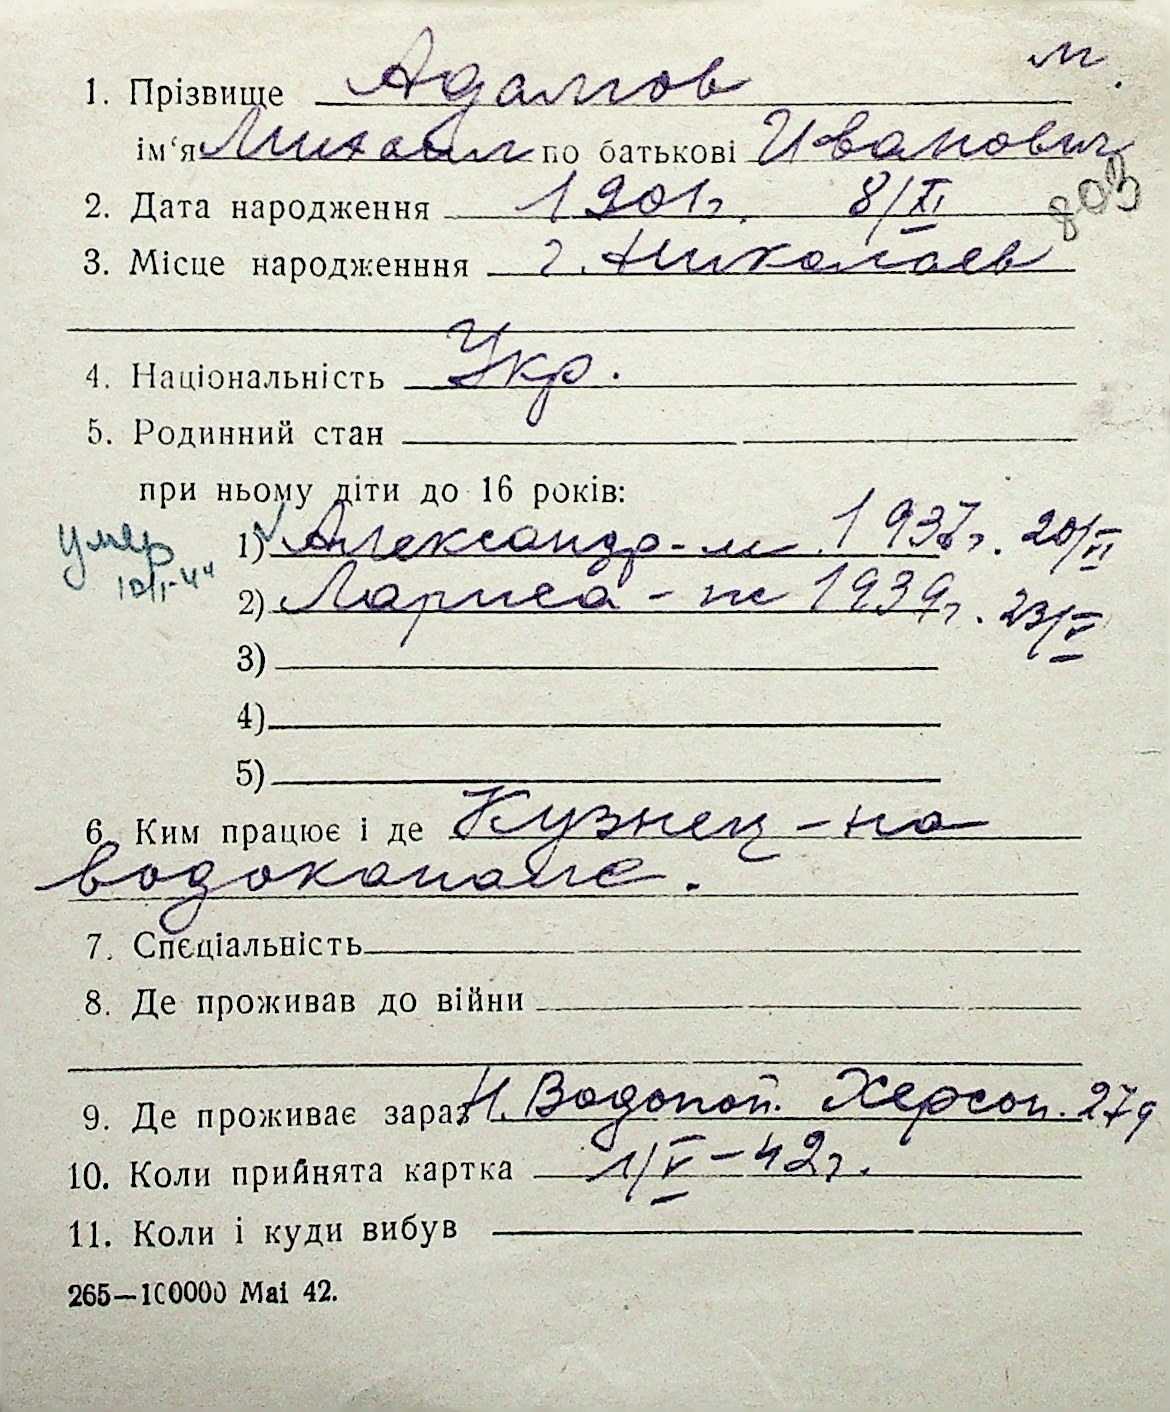 м.
1. Прізвище Адамов
ім'я Михаил по батькові Иванович
803
2. Дата народження 1901г. 8/XI
3. Місце народженння г. Николаев
4. Національність Укр.
5. Родинний стан
при ньому діти до 16 років:
1) Александр - м. 1937г. 20/VI
умер
10/I-44
2) Лариса - ж 1939г. 23/V
3)
4)
5)
6. Ким працює і де Кузнец - на
водоканале.
7. Спєціальність
8. Де проживав до війни
9. Де проживає зараз Н. Водопой. Херсон. 27д
10. Коли прийнята картка 1/V-42г.
11. Коли і куди вибув
265—100000 Mai 42.